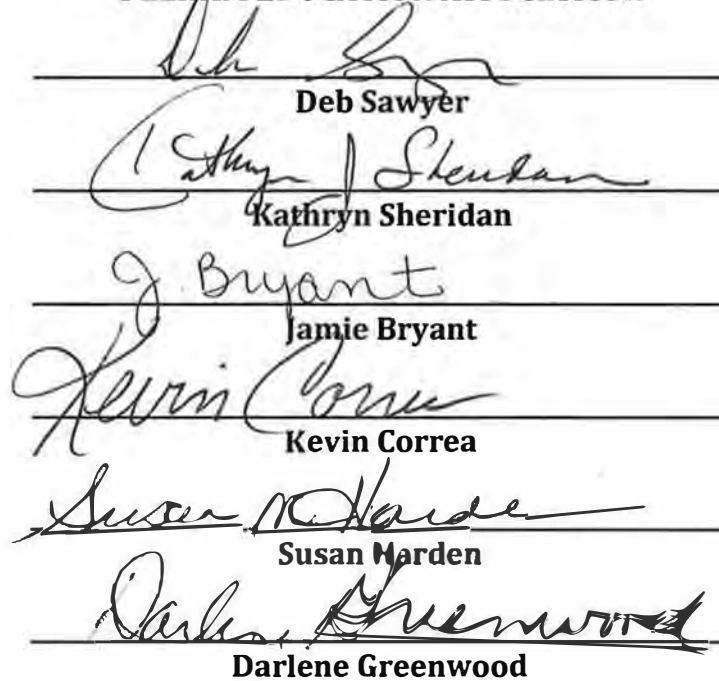 Deb Sawyer
Kathryn J Sheridan
Kathryn Sheridan
J. Bryant
Jamie Bryant
Kevin Correa
Kevin Correa
Susan M Harden
Susan Harden
Darlene Greenwood
Darlene Greenwood